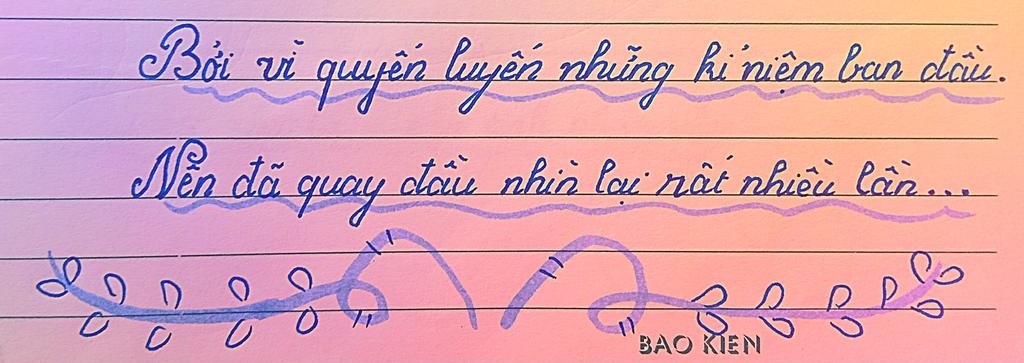 Bởi vì quyến luyến những kỉ niệm ban đầu.
Nên đã quay đầu nhìn lại rất nhiều lần...
BAO KIEN